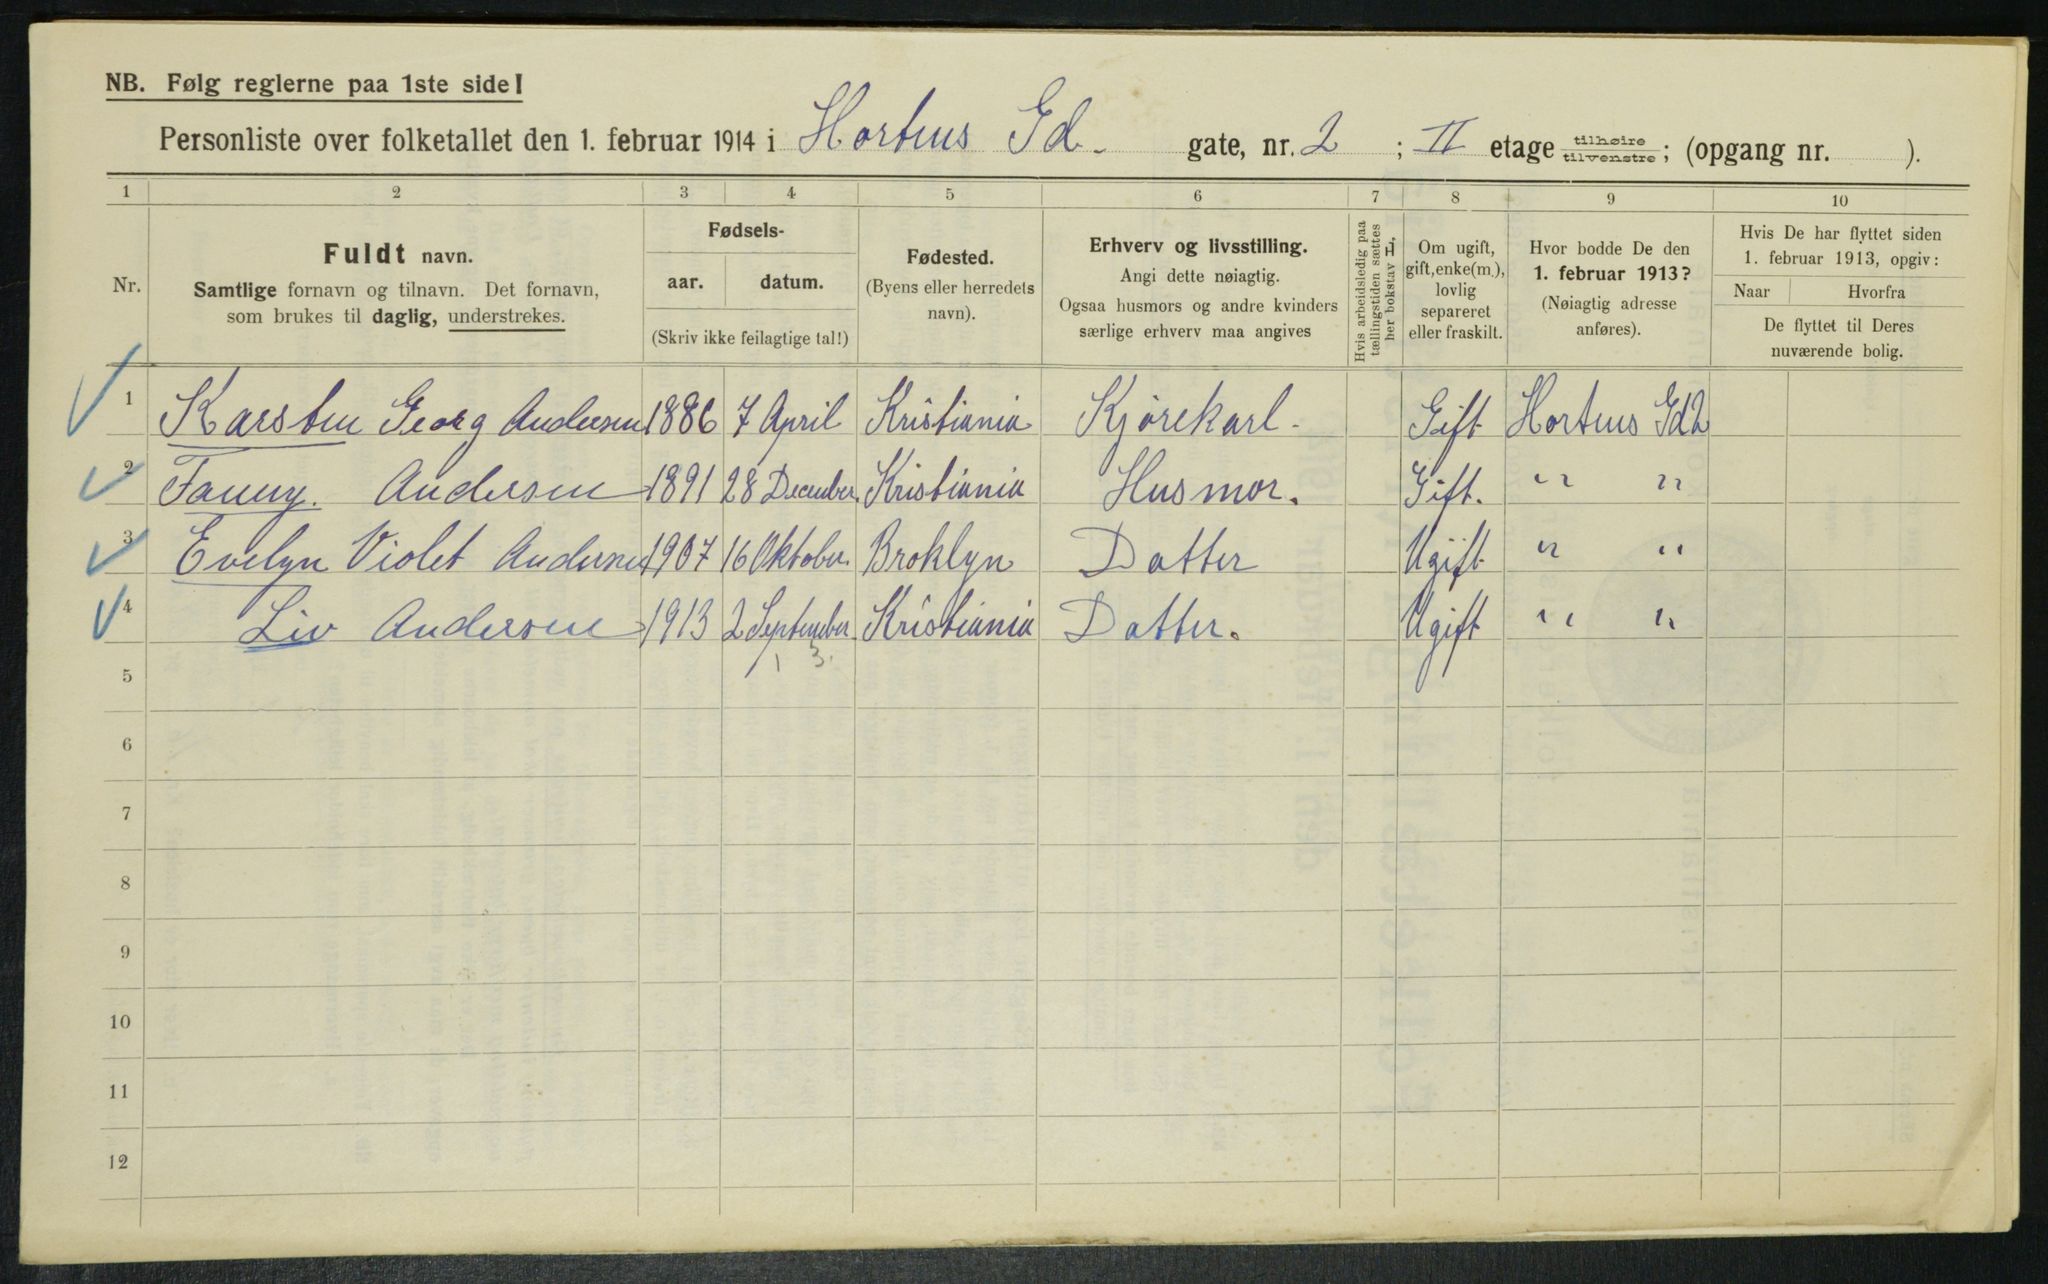 NB. Følg reglerne paa 1ste side!
Personliste over folketallet den 1. februar 1914 i Hortus Gd. gate, nr. 2 ; II etage tilhøire tilvenstre; (opgang nr. ).
1 2 3 4 5 6 7 8 9 10
Nr.
Fuldt navn.
Samtlige fornavn og tilnavn. Det fornavn,
som brukes til daglig, understrekes.
Fødsels-
aar. datum.
(Skriv ikke feilagtige tal!)
Fødested.
(Byens eller herredets
navn).
Erhverv og livsstilling.
Angi dette nøiagtig.
Ogsaa husmors og andre kvinders
særlige erhverv maa angives
Hvis arbeidsledig paa
tællingstiden sættes
her bokstav H,
Om ugift,
gift, enke(m.),
lovlig
separeret
eller fraskilt.
Hvor bodde De den
1. februar 1913?
(Nøiagtig adresse
anføres).
Hvis De har flyttet siden
1. februar 1913, opgiv:
Naar Hvorfra
De flyttet til Deres
nuværende bolig.
1 Karsten Georg Andersen 1886 7 April Kristiania Kjørekarl. Gift Hortus Gd 2
2 Fanny. Andersen 1891 28 December. Kristiania Husmor. Gift. " "
3 Evelyn Violet Andersen 1907 16 Oktober. Broklyn Datter Ugift " "
4 Liv Andersen 1913 2 September. Kristiania Datter. Ugift " "
1 3.
5
6
7
8
9
10
11
12